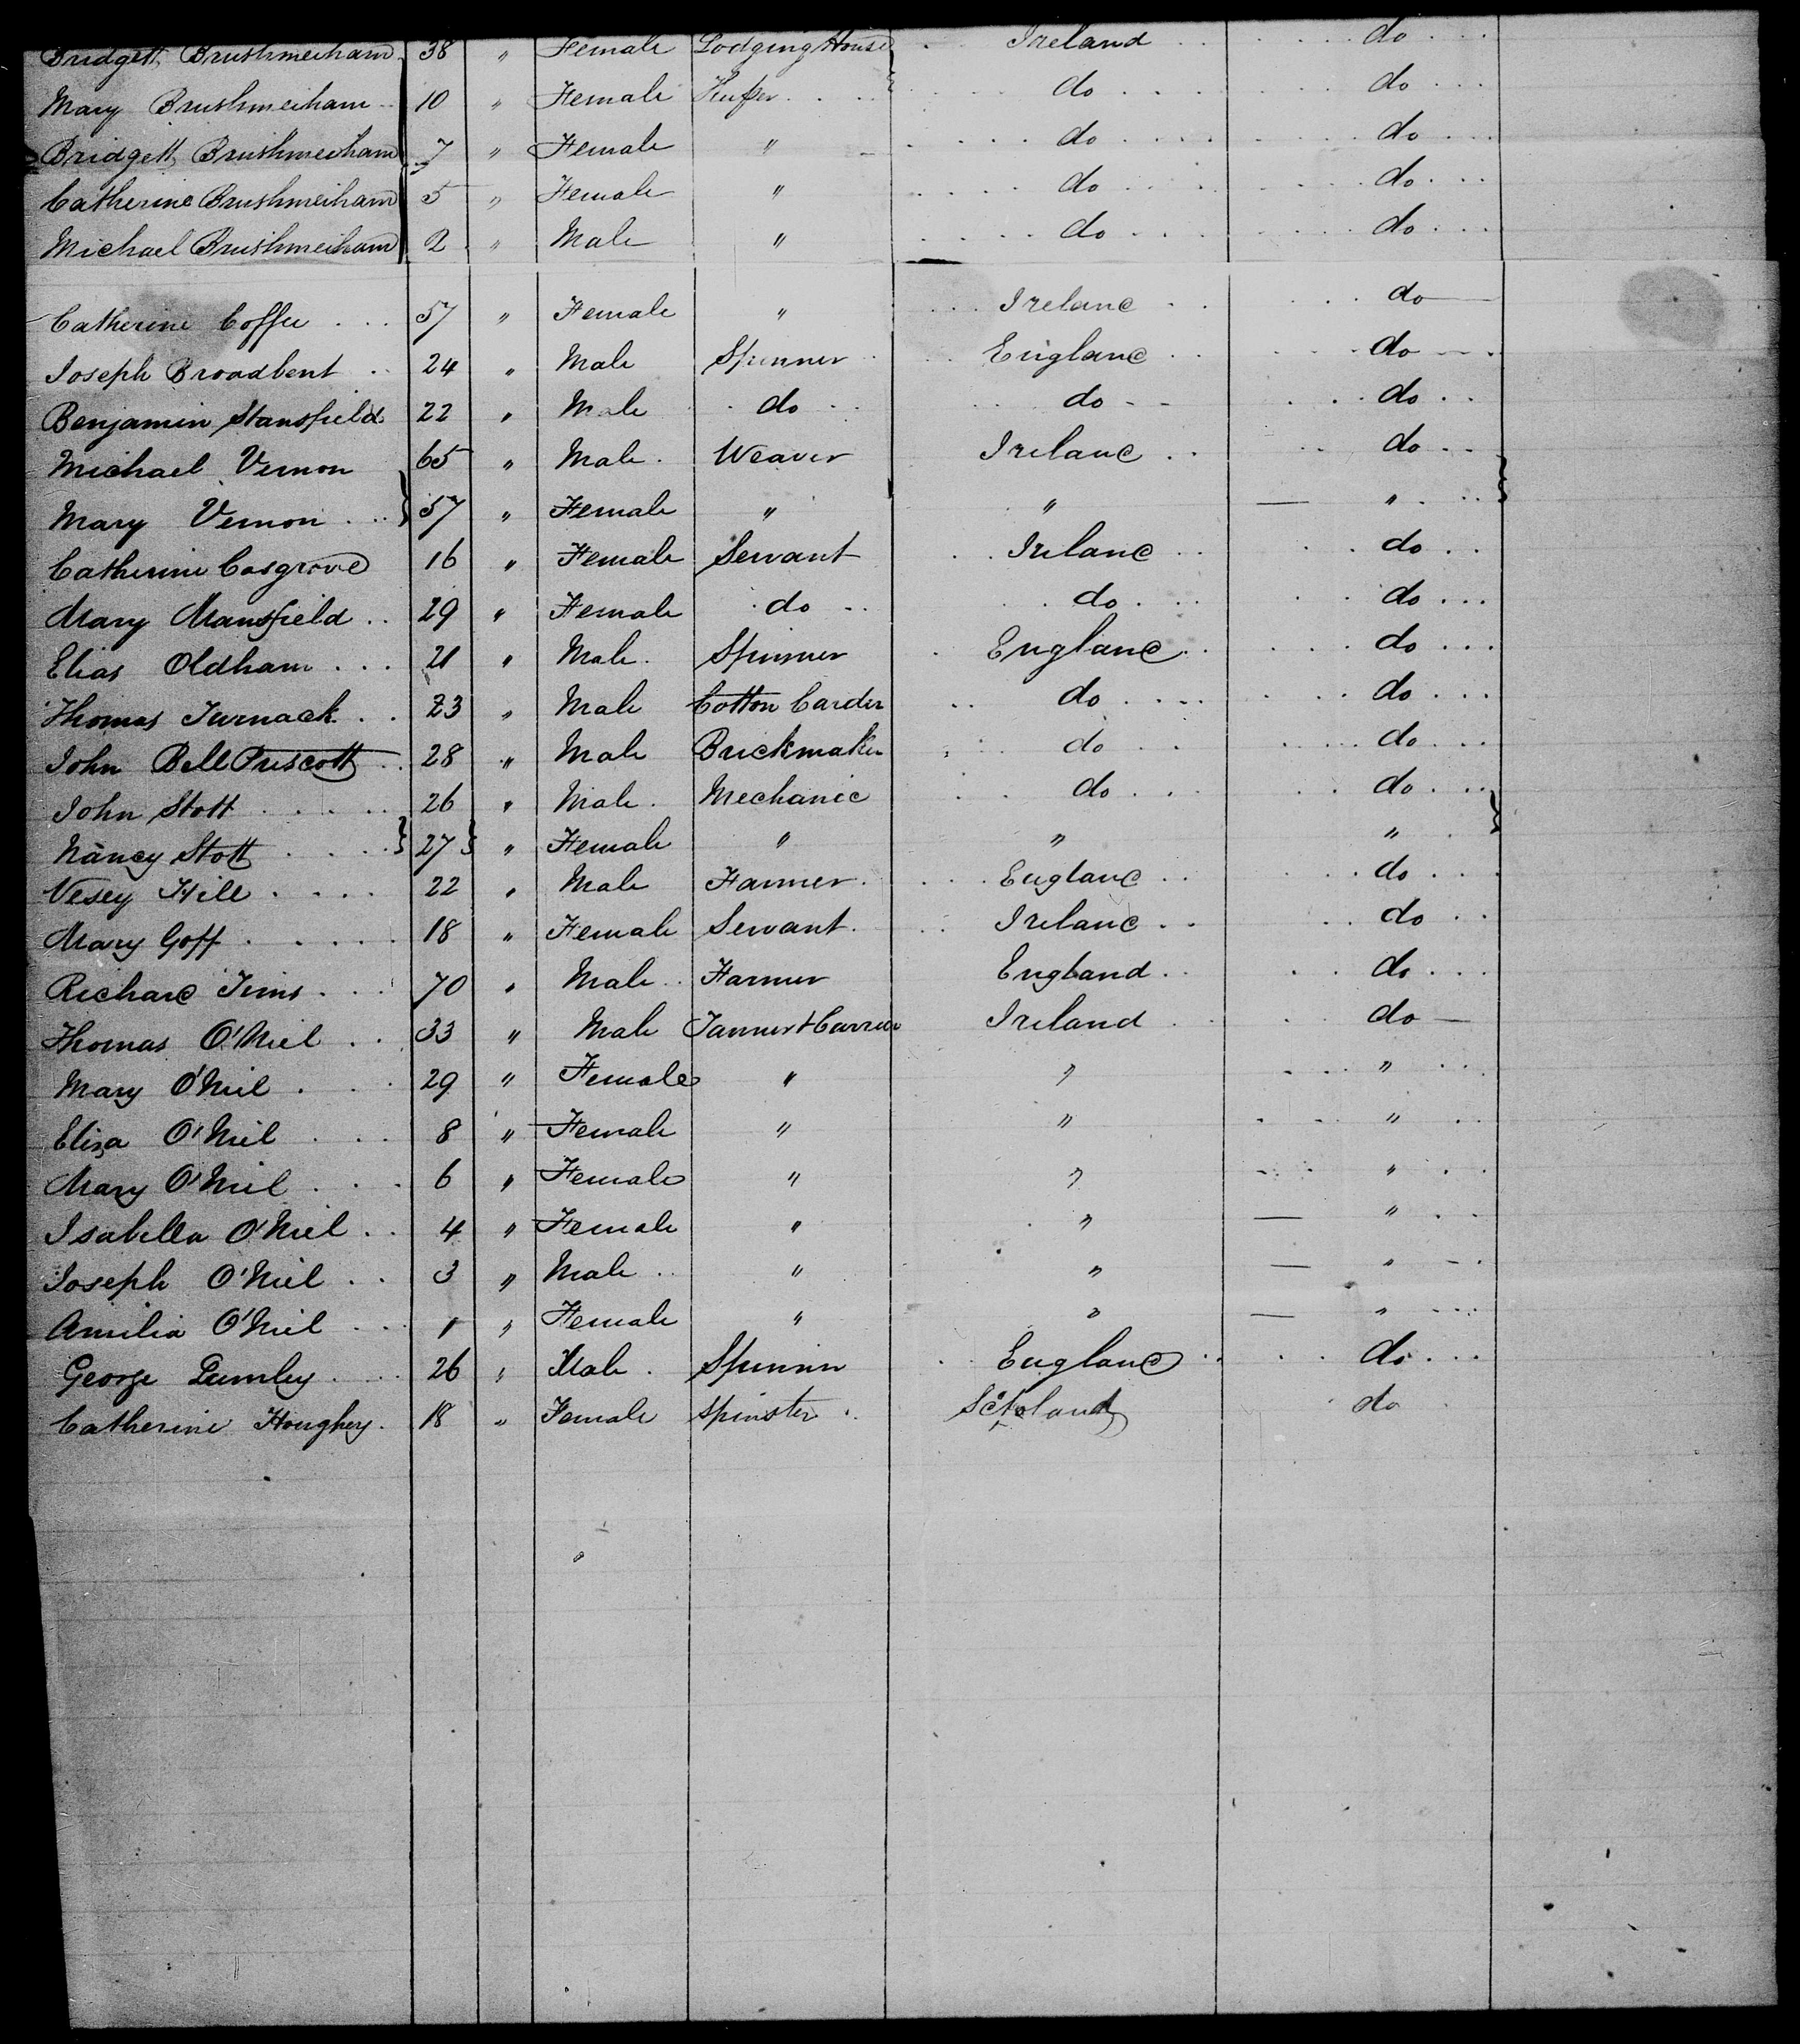 Bridgett Brushmeiham 38 " Female Lodging House Ireland do
Mary Brushmeiham 10 " Female Keeper do do
Bridgett Brushmeiham 7 " Female " do do
Catherine Brushmeiham 5 " Female " do do
Michael Brushmeiham 2 " Male " do do
Catherine Coffee 57 " Female " Ireland do
Joseph Broadbent 24 " Male Spinner England do
Benjamin Stansfield 22 " Male do do do
Michael Vernon 65 " Male Weaver Ireland do
Mary Vernon 57 " Female " " "
Catherine Cosgrove 16 " Female Servant Ireland do
Mary Mansfield 29 " Female do do do
Elias Oldham 21 " Male Spinner England do
Thomas Turnack 23 " Male Cotton Carder do do
John Bell Prescott 28 " Male Brickmaker do do
John Stott 26 " Male Mechanic do do
Nancy Stott 27 " Female " " "
Vesey Hill 22 " Male Farmer England do
Mary Goff 18 " Female Servant Ireland do
Richard Tims 70 " Male Farmer England do
Thomas O'Niel 33 " Male Tanner & Currier Ireland do
Mary O'Niel 29 " Female " " "
Eliza O'Niel 8 " Female " " "
Mary O'Niel 6 " Female " " "
Isabella O'Niel 4 " Female " " "
Joseph O'Niel 3 " Male " " "
Amilia O'Niel 1 " Female " " "
George Lumley 26 " Male Spinnin England do
Catherine Houghey 18 " Female Spinster Scotland do